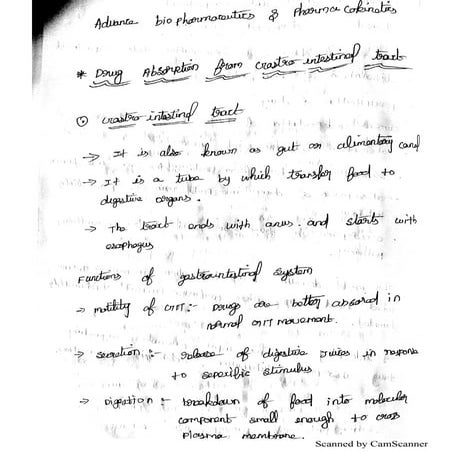 Advance biopharmaceutics & Pharmacokinetics
* Drug Absorption from Gastro intestinal tract
⊙ Gastro-intestinal tract
→ It is also known as gut or alimentary canal
→ It is a tube by which transfer food to
digestive organs.
→ The tract ends with anus and starts with
esophagus
Functions of gastrointestinal system
→ motility of GIT:- Drugs are better absored in
normal GIT movement.
→ secretion :- release of digestive Juices in response
to seperific stimulus
→ Digestion :- breakdown of food into molecular
component small enough to cross
plasma membrane.
Scanned by CamScanner